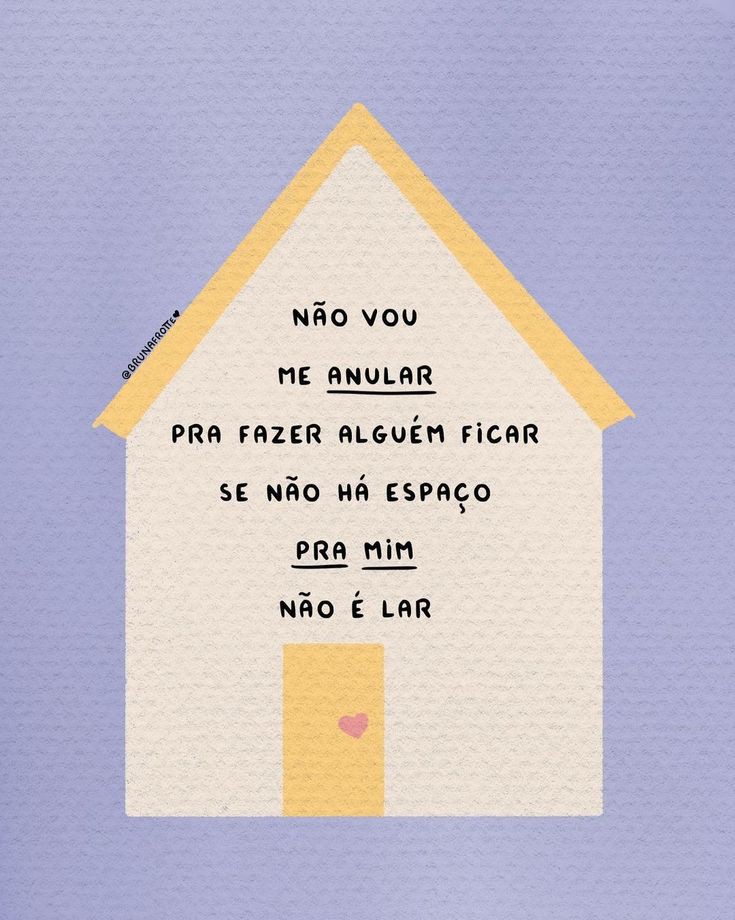 NÃO VOU
ME ANULAR
PRA FAZER ALGUÉM FICAR
SE NÃO HÁ ESPAÇO
PRA MIM
NÃO É LAR
@BRUNAFROTTE♥